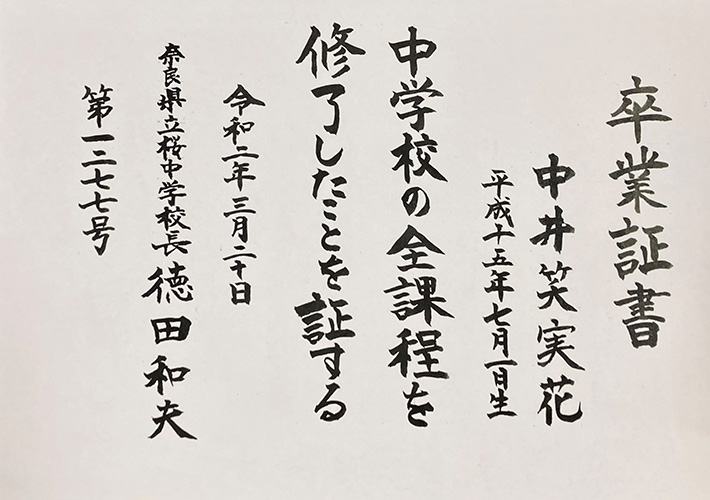 卒業証書
中井笑実花
平成十五年七月一日生
中学校の全課程を
修了したことを証する
令和二年三月二十日
奈良県立桜中学校長 徳田和夫
第一二七七号